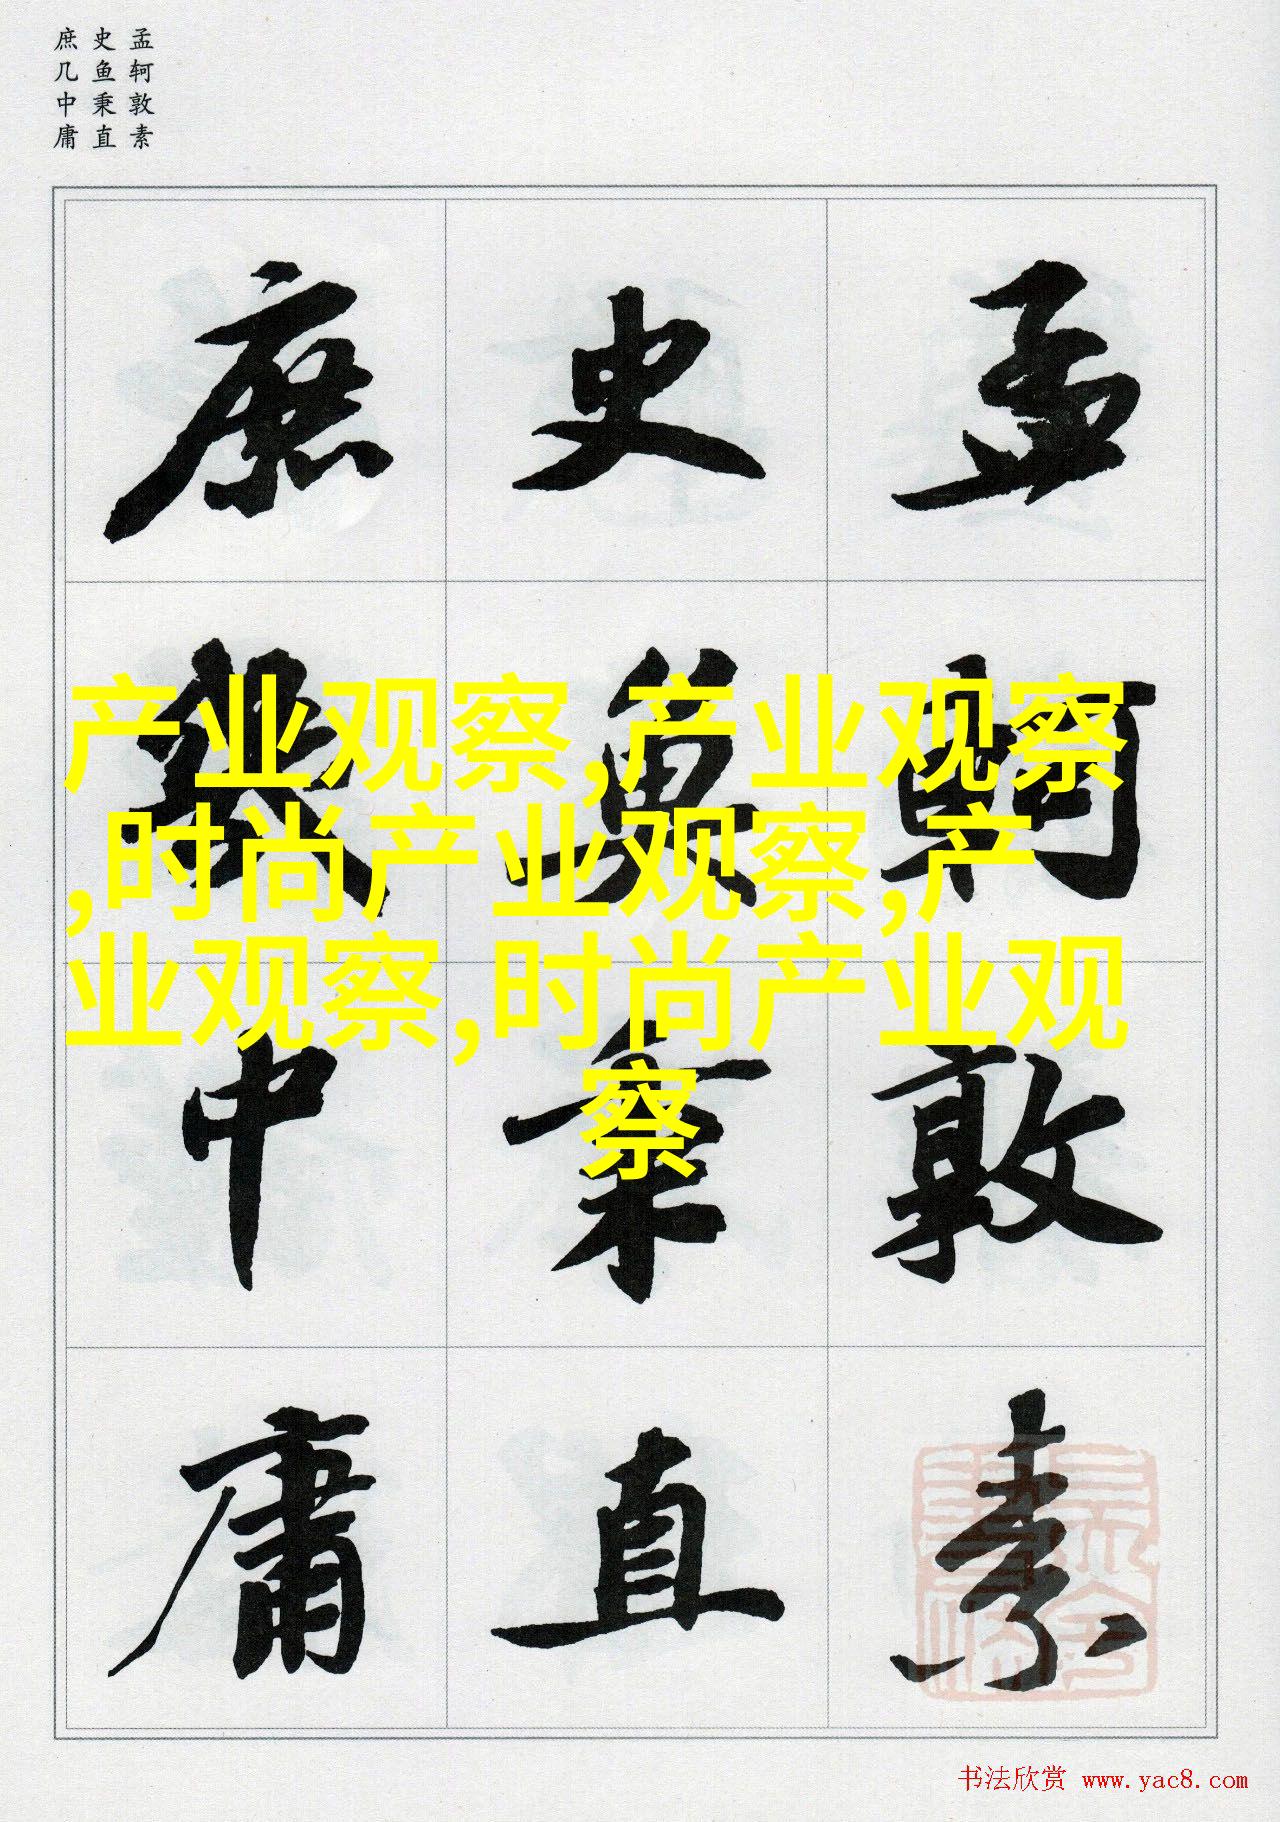 孟轲敦素
史鱼秉直
庶几中庸
孟轲敦素
史鱼秉直
庶几中庸
产业观察,产业观察
,时尚产业观察,产
业观察,时尚产业观
察
书法欣赏 www.yac8.com